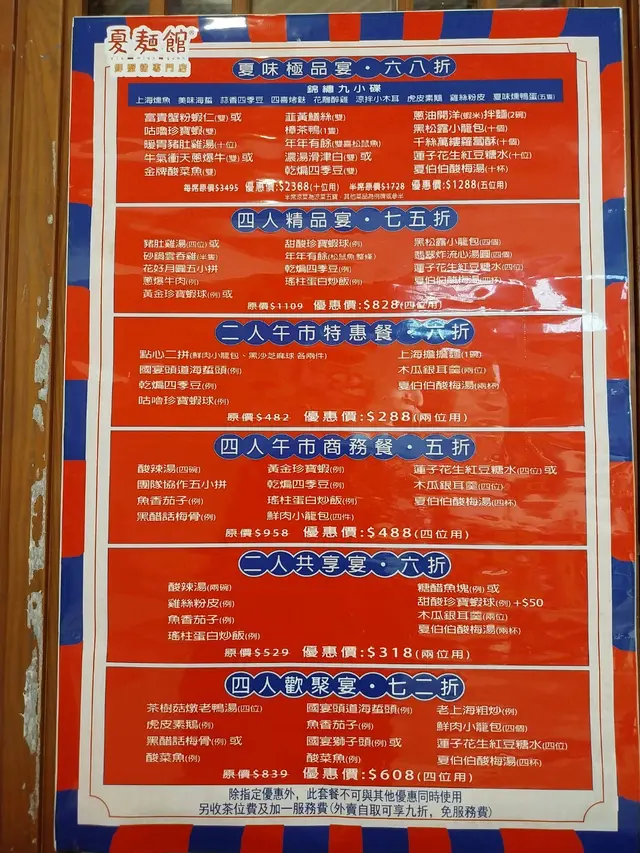 夏麵館®
XIA MIAN GUAN
夏味極品宴・六八折
錦繡九小碟
上海燻魚 美味海蜇 蒜香四季豆 四喜烤麩 花雕醉雞 涼拌小木耳 虎皮素鵝 雞絲粉皮 夏味燻鴨蛋(五隻)
富貴蟹粉蝦仁(雙) 或 韮黃鱔絲(雙) 蔥油開洋(蝦米)拌麵(2碗)
咕嚕珍寶蝦(雙) 樟茶鴨(1隻) 黑松露小籠包(十個)
暖胃豬肚雞湯(十位) 年年有餘(雙喜松鼠魚) 千絲萬縷蘿蔔酥(十個)
牛氣衝天蔥爆牛(雙) 或 濃湯滑津白(雙) 或 蓮子花生紅豆糖水(十位)
金牌酸菜魚(雙) 乾煸四季豆(雙) 夏伯伯酸梅湯(十杯)
每席原價$3495 優惠價:$2368(十位用) 半席原價$1728 優惠價:$1288(五位用)
四人精品宴・七五折
豬肚雞湯(四位) 或 甜酸珍寶蝦球(例) 黑松露小籠包(四個)
砂鍋雲吞雞(半隻) 年年有餘(松鼠魚 整條) 翡翠炸流心湯圓(四個)
花好月圓五小拼 乾煸四季豆(例) 蓮子花生紅豆糖水(四位)
蔥爆牛肉(例) 瑤柱蛋白炒飯(例) 夏伯伯酸梅湯(四杯)
黃金珍寶蝦球(例) 或
原價$1109 優惠價:$828(四位用)
二人午市特惠餐・六折
點心二拼(鮮肉小籠包、黑沙芝麻球 各兩件) 上海擔擔麵(1碗)
國宴頭道海蜇頭(例) 木瓜銀耳羹(兩位)
乾煸四季豆(例) 夏伯伯酸梅湯(兩杯)
咕嚕珍寶蝦球(例)
原價$482 優惠價:$288(兩位用)
四人午市商務餐・五折
酸辣湯(四碗) 黃金珍寶蝦(例) 蓮子花生紅豆糖水(四位) 或
團隊協作五小拼 乾煸四季豆(例) 木瓜銀耳羹(四位)
魚香茄子(例) 瑤柱蛋白炒飯(例) 夏伯伯酸梅湯(四杯)
黑醋話梅骨(例) 鮮肉小籠包(四件)
原價$958 優惠價:$488(四位用)
二人共享宴・六折
酸辣湯(兩碗) 糖醋魚塊(例) 或
雞絲粉皮(例) 甜酸珍寶蝦球(例)+$50
魚香茄子(例) 木瓜銀耳羹(兩位)
瑤柱蛋白炒飯(例) 夏伯伯酸梅湯(兩杯)
原價$529 優惠價:$318(兩位用)
四人歡聚宴・七二折
茶樹菇燉老鴨湯(四位) 國宴頭道海蜇頭(例) 老上海粗炒(例)
虎皮素鵝(例) 魚香茄子(例) 鮮肉小籠包(四個)
黑醋話梅骨(例) 或 國宴獅子頭(例) 或 蓮子花生紅豆糖水(四位)
酸菜魚(例) 酸菜魚(例) 夏伯伯酸梅湯(四杯)
原價$839 優惠價:$608(四位用)
除指定優惠外，此套餐不可與其他優惠同時使用
另收茶位費及加一服務費(外賣自取可享九折，免服務費)